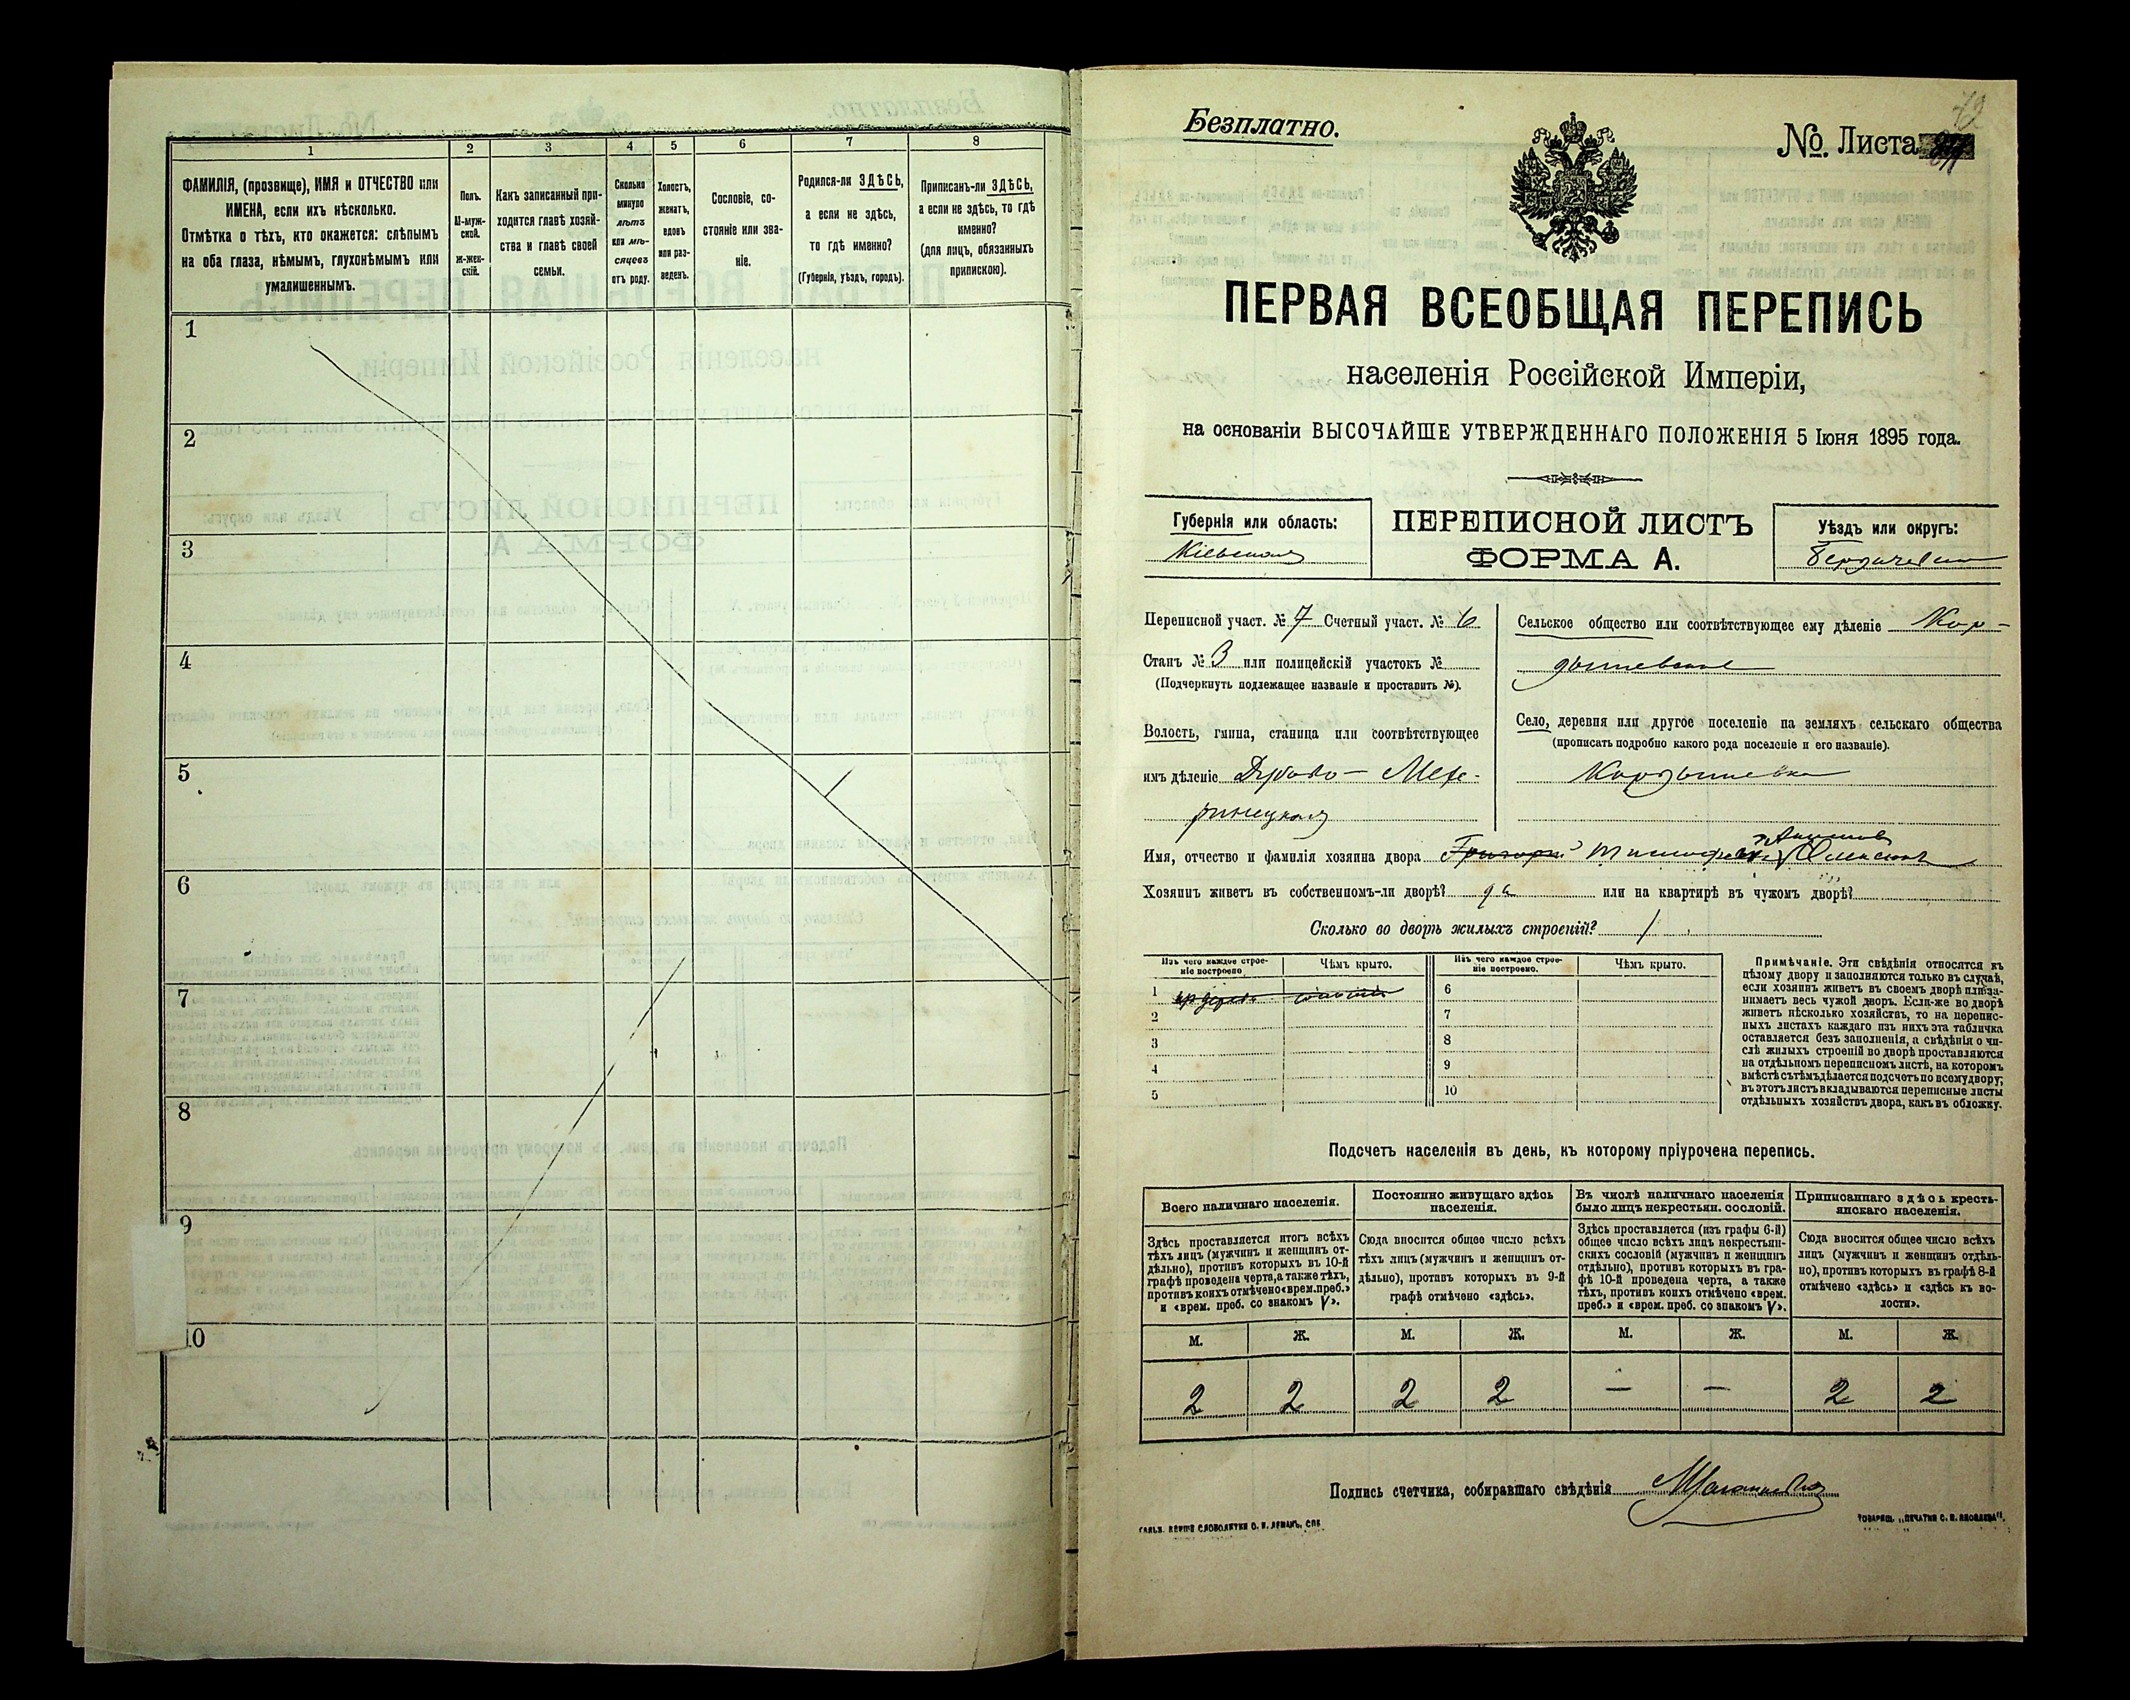 1 2 3 4 5 6 7 8
ФАМИЛІЯ, (прозвище), ИМЯ и ОТЧЕСТВО или
ИМЕНА, если ихъ нѣсколько.
Отмѣтка о тѣхъ, кто окажется: слѣпымъ
на оба глаза, нѣмымъ, глухонѣмымъ или
умалишеннымъ.
Полъ.
М-муж-
ской.
Ж-жен-
скій.
Какъ записанный при-
ходится главѣ хозяй-
ства и главѣ своей
семьи.
Сколько
минуло
лѣтъ
или мѣ-
сяцевъ
отъ роду.
Холостъ,
женатъ,
вдовъ
или раз-
веденъ.
Сословіе, со-
стояніе или зва-
ніе.
Родился-ли ЗДѢСЬ,
а если не здѣсь,
то гдѣ именно?
(Губернія, уѣздъ, городъ).
Приписанъ-ли ЗДѢСЬ,
а если не здѣсь, то гдѣ
именно?
(для лицъ, обязанныхъ
припискою).
1
2
3
4
5
6
7
8
9
10
Безплатно.
№. Листа
ПЕРВАЯ ВСЕОБЩАЯ ПЕРЕПИСЬ
населенія Россійской Имперіи,
на основаніи ВЫСОЧАЙШЕ УТВЕРЖДЕННАГО ПОЛОЖЕНІЯ 5 Іюня 1895 года.
Губернія или область:
Кіевская
ПЕРЕПИСНОЙ ЛИСТЪ
ФОРМА А.
Уѣздъ или округъ:
Бердичевскій
Переписной участ. № 7 Счетный участ. № 6
Станъ № 3 или полицейскій участокъ №
(Подчеркнуть подлежащее названіе и проставить №).
Волость, гмина, станица или соотвѣтствующее
имъ дѣленіе Дубово-Мехе-
ринецкая
Сельское общество или соотвѣтствующее ему дѣленіе Кор-
дышевское
Село, деревня или другое поселеніе на земляхъ сельскаго общества
(прописать подробно какого рода поселеніе и его названіе).
Кордышевка
Имя, отчество и фамилія хозяина двора Григорій
Хозяинъ живетъ въ собственномъ-ли дворѣ? да или на квартирѣ въ чужомъ дворѣ?
Сколько во дворѣ жилыхъ строеній? 1
Изъ чего каждое строе-
ніе построено
Чѣмъ крыто.
Изъ чего каждое строе-
ніе построено.
Чѣмъ крыто.
1 6
2 7
3 8
4 9
5 10
Примѣчаніе. Эти свѣдѣнія относятся къ
цѣлому двору и заполняются только въ случаѣ,
если хозяинъ живетъ въ своемъ дворѣ или за-
нимаетъ весь чужой дворъ. Если-же во дворѣ
живетъ нѣсколько хозяйствъ, то на перепис-
ныхъ листахъ каждаго изъ нихъ эта табличка
оставляется безъ заполненія, а свѣдѣнія о чи-
слѣ жилыхъ строеній во дворѣ проставляются
на отдѣльномъ переписномъ листѣ, на которомъ
вмѣстѣ съ тѣмъ дѣлается подсчетъ по всему двору;
въ этотъ листъ вкладываются переписные листы
отдѣльныхъ хозяйствъ двора, какъ въ обложку.
Подсчетъ населенія въ день, къ которому пріурочена перепись.
Всего наличнаго населенія.
Здѣсь проставляется итогъ всѣхъ
тѣхъ лицъ (мужчинъ и женщинъ от-
дѣльно), противъ которыхъ въ 10-й
графѣ проведена черта, а также тѣхъ,
противъ коихъ отмѣчено «врем. преб.»
и «врем. преб. со знакомъ V».
Постоянно живущаго здѣсь
населенія.
Сюда вносится общее число всѣхъ
тѣхъ лицъ (мужчинъ и женщинъ от-
дѣльно), противъ которыхъ въ 9-й
графѣ отмѣчено «здѣсь».
Въ числѣ наличнаго населенія
было лицъ некрестьян. сословій.
Здѣсь проставляется (изъ графы 6-й)
общее число всѣхъ лицъ некрестьян-
скихъ сословій (мужчинъ и женщинъ
отдѣльно), противъ которыхъ въ гра-
фѣ 10-й проведена черта, а также
тѣхъ, противъ коихъ отмѣчено «врем.
преб.» и «врем. преб. со знакомъ V».
Приписаннаго здѣсь кресть-
янскаго населенія.
Сюда вносится общее число всѣхъ
лицъ (мужчинъ и женщинъ отдѣль-
но), противъ которыхъ въ графѣ 8-й
отмѣчено «здѣсь» и «здѣсь къ во-
лости».
М. Ж. М. Ж. М. Ж. М. Ж.
2 2 2 2 — — 2 2
Подпись счетчика, собиравшаго свѣдѣнія